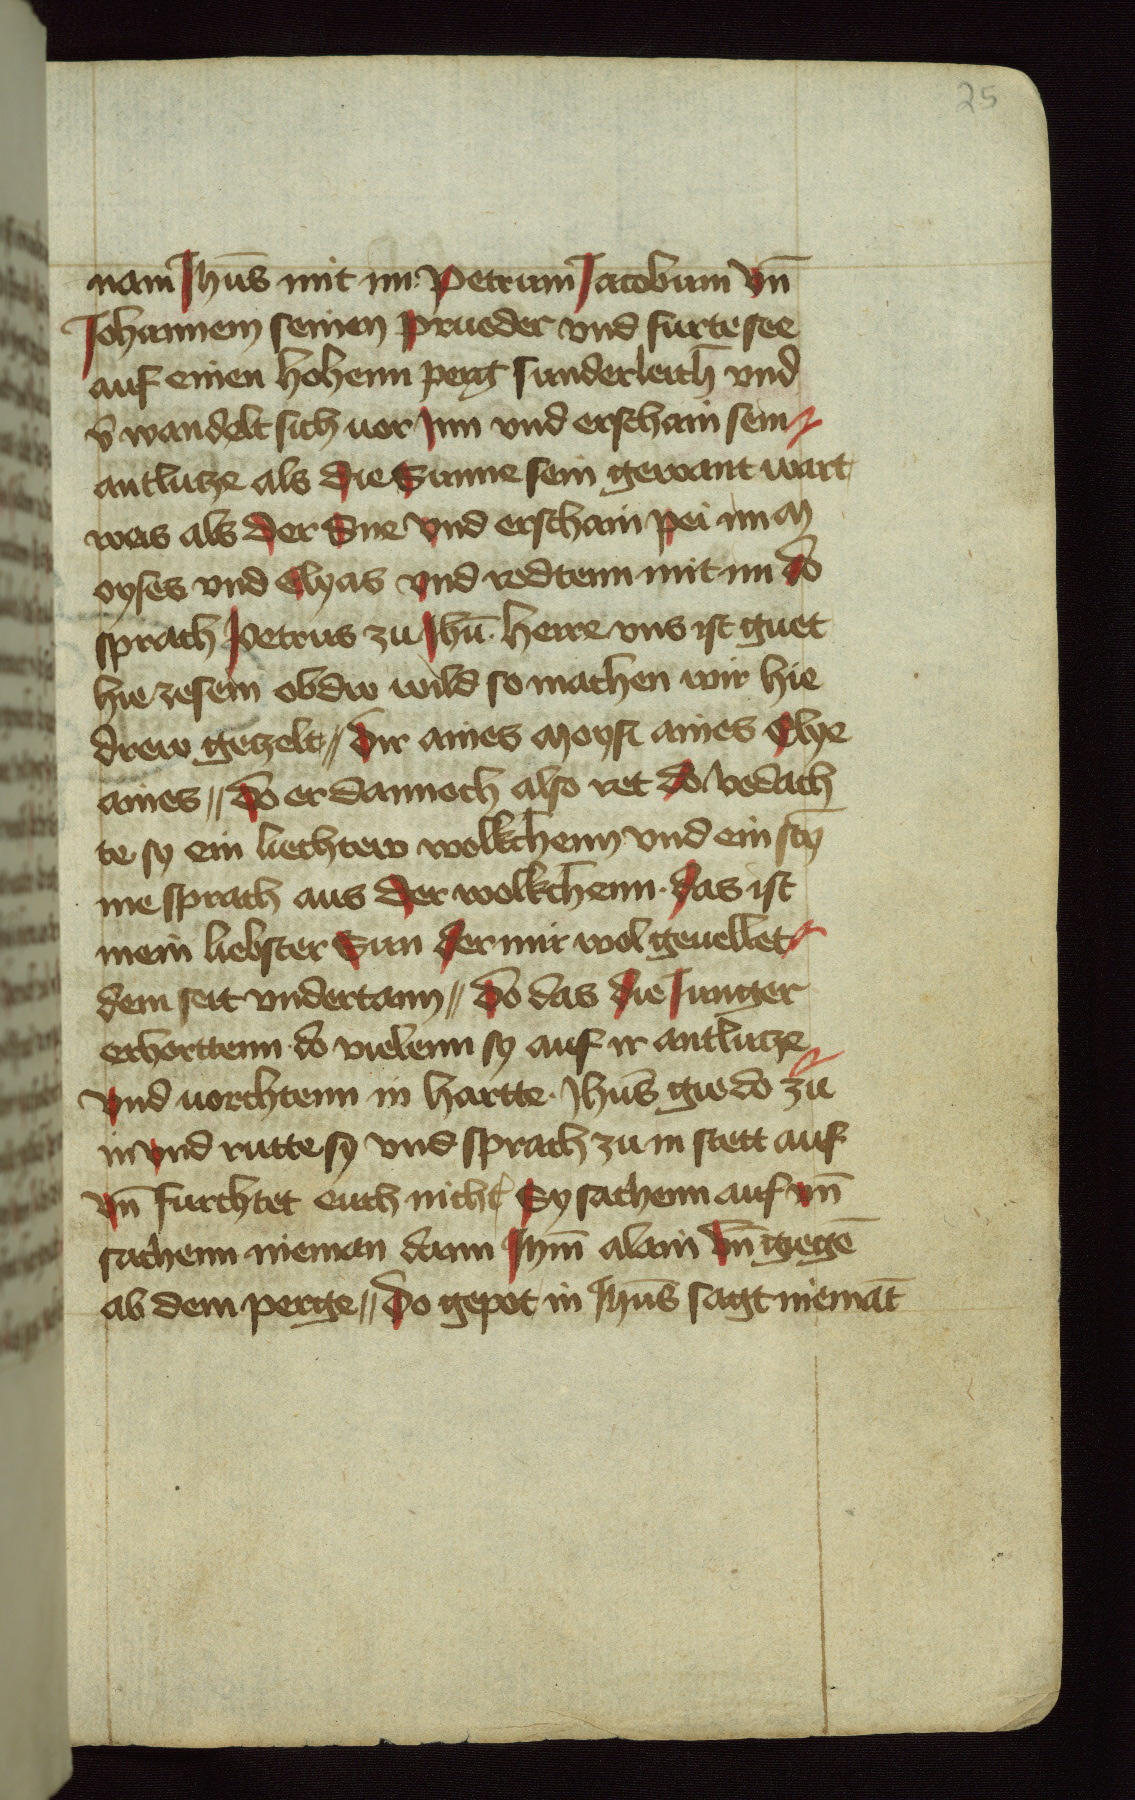 25
nam Jhūs mit im Petrum Jacobum vn̄
Johannem seinen prueder vnd furte see
auf einen hohenn perg sunderleich vnd
v̄wandelt sich uor Inn vnd erschain sein
antlutze als die Sunne sein gewant wart
weis als der Sne vnd erschain pei im M
oyses vnd Elyas vnd redtenn mit im do
sprach Petrus zu Jhū. herre vns ist guet
hie zesein ob dw wild so machen wir hie
drew getzelt // Dir aines Moysi aines Elye
aines // Do er dannoch also ret do bedach
te sy ein liechtew wolkchenn vnd ein sty̅
me sprach aus der wolkchenn. das ist
mein liebster Sun der mir wol geuellet
dem seit vndertann // Do das die Junger
erhorttenn do vielenn sy auf ir antlutze
vnd uorchtenn in hartte. Jhūs gie do zu
in vnd rurte sy vnd sprach zu in stett auf
vn̄ furchtet euch nicht Sy sachenn auf vn̄
sachenn nieman dann Jhm̄ alain Vn̄ giegē
ab dem perge // Do gepot in Jhūs sagt niemāt